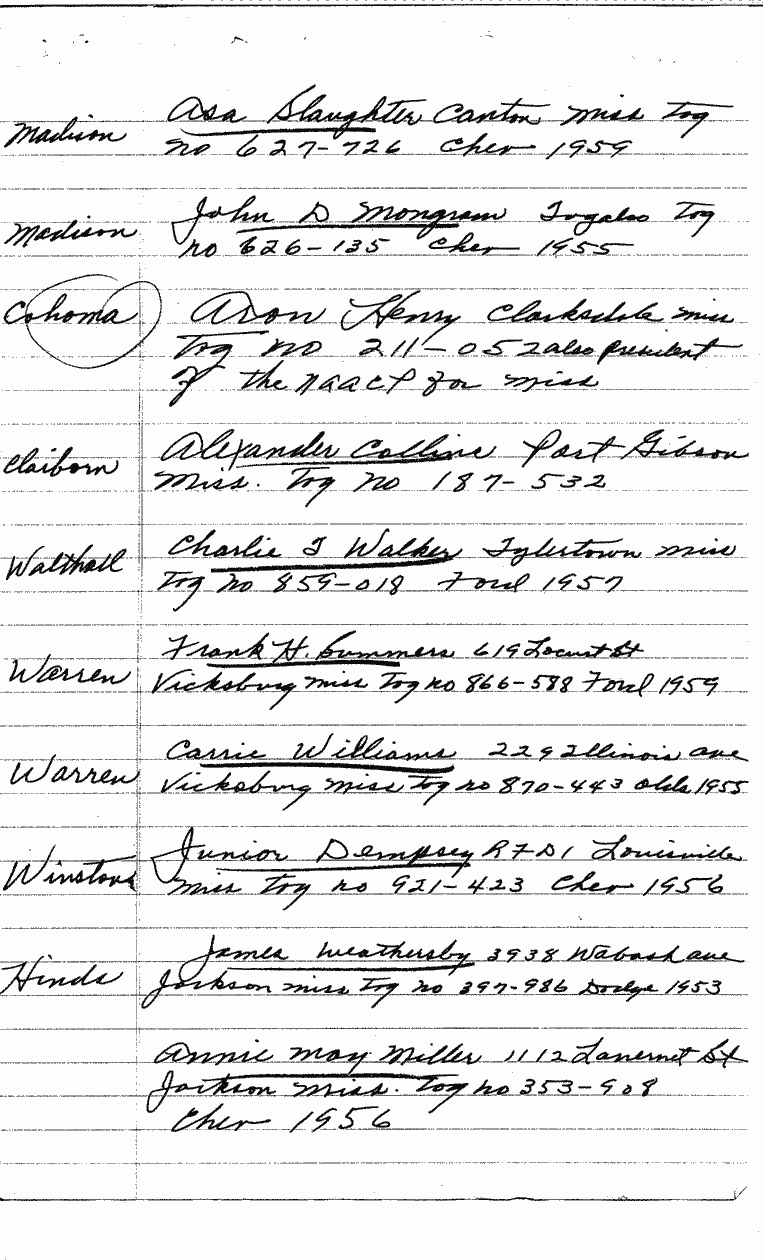 Madison
Asa Slaughter Canton Miss Tag
no 627-726 Chev 1959
Madison
John D Mongram Tugaloo Tag
no 626-135 Chev 1955
Cohoma
Aron Henry Clarksdale miss
Tag no 211-052 also president
of the NAACP for miss
Claiborn
Alexander Collins Port Gibson
Miss. Tag no 187-532
Walthall
Charlie T Walker Tylertown miss
Tag no 859-018 Ford 1957
Warren
Frank H. Summers 619 Locust St
Vicksburg miss Tag no 866-588 Ford 1959
Warren
Carrie Williams 229 Illinois ave
Vicksburg Miss Tag no 870-443 Olds 1955
Winston
Junior Dempsey RFD 1 Louisville
miss Tag no 921-423 Chev 1956
Hinds
James Weathersby 3938 Wabash ave
Jackson miss Tag no 397-986 Dodge 1953
Annie May Miller 1112 St
Jackson Miss. Tag no 353-908
Chev 1956